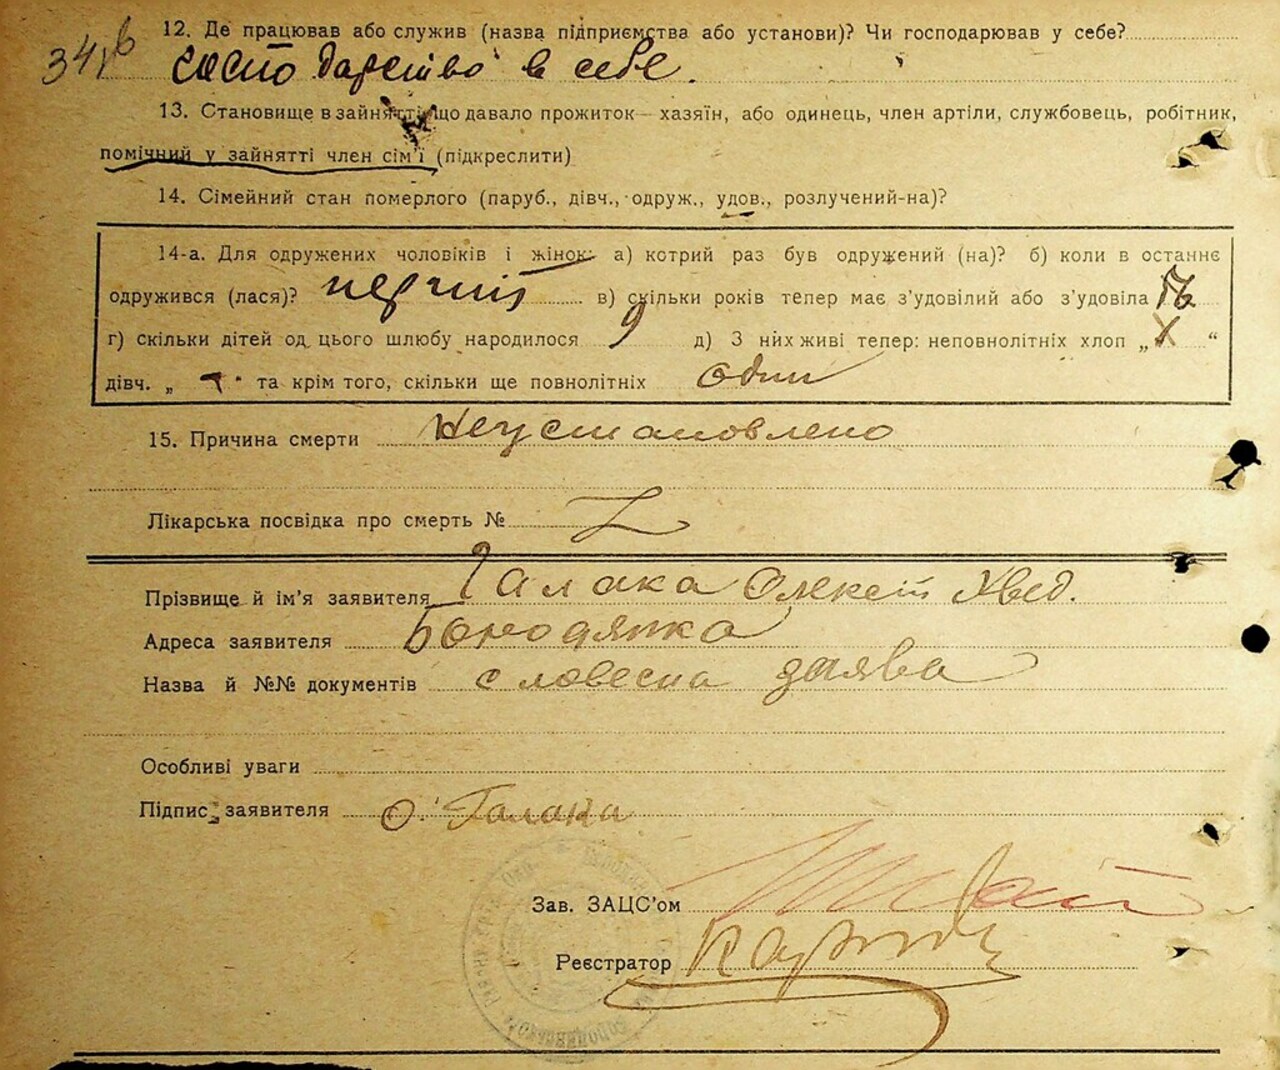 12. Де працював або служив (назва підприємства або установи)? Чи господарював у себе?
34
господарство в себе.
13. Становище в зайнятті що давало прожиток — хазяїн, або одинець, член артіли, службовець, робітник,
помічний у зайнятті член сім'ї (підкреслити)
14. Сімейний стан померлого (паруб., дівч., одруж., удов., розлучений-на)?
14-а. Для одружених чоловіків і жінок: а) котрий раз був одружений (на)? б) коли в останнє
одружився (лася)? перший в) скільки років тепер має з'удовілий або з'удовіла
г) скільки дітей од цього шлюбу народилося 9 д) З них живі тепер: неповнолітніх хлоп „ Х “
дівч. „ “ та крім того, скільки ще повнолітніх один
15. Причина смерти Неустановлено
Лікарська посвідка про смерть № Z
Прізвище й ім'я заявителя Галака Олексій Хвед.
Адреса заявителя Бородянка
Назва й №№ документів словесна заява
Особливі уваги
Підпис заявителя О. Галака
Зав. ЗАЦС'ом
Реєстратор